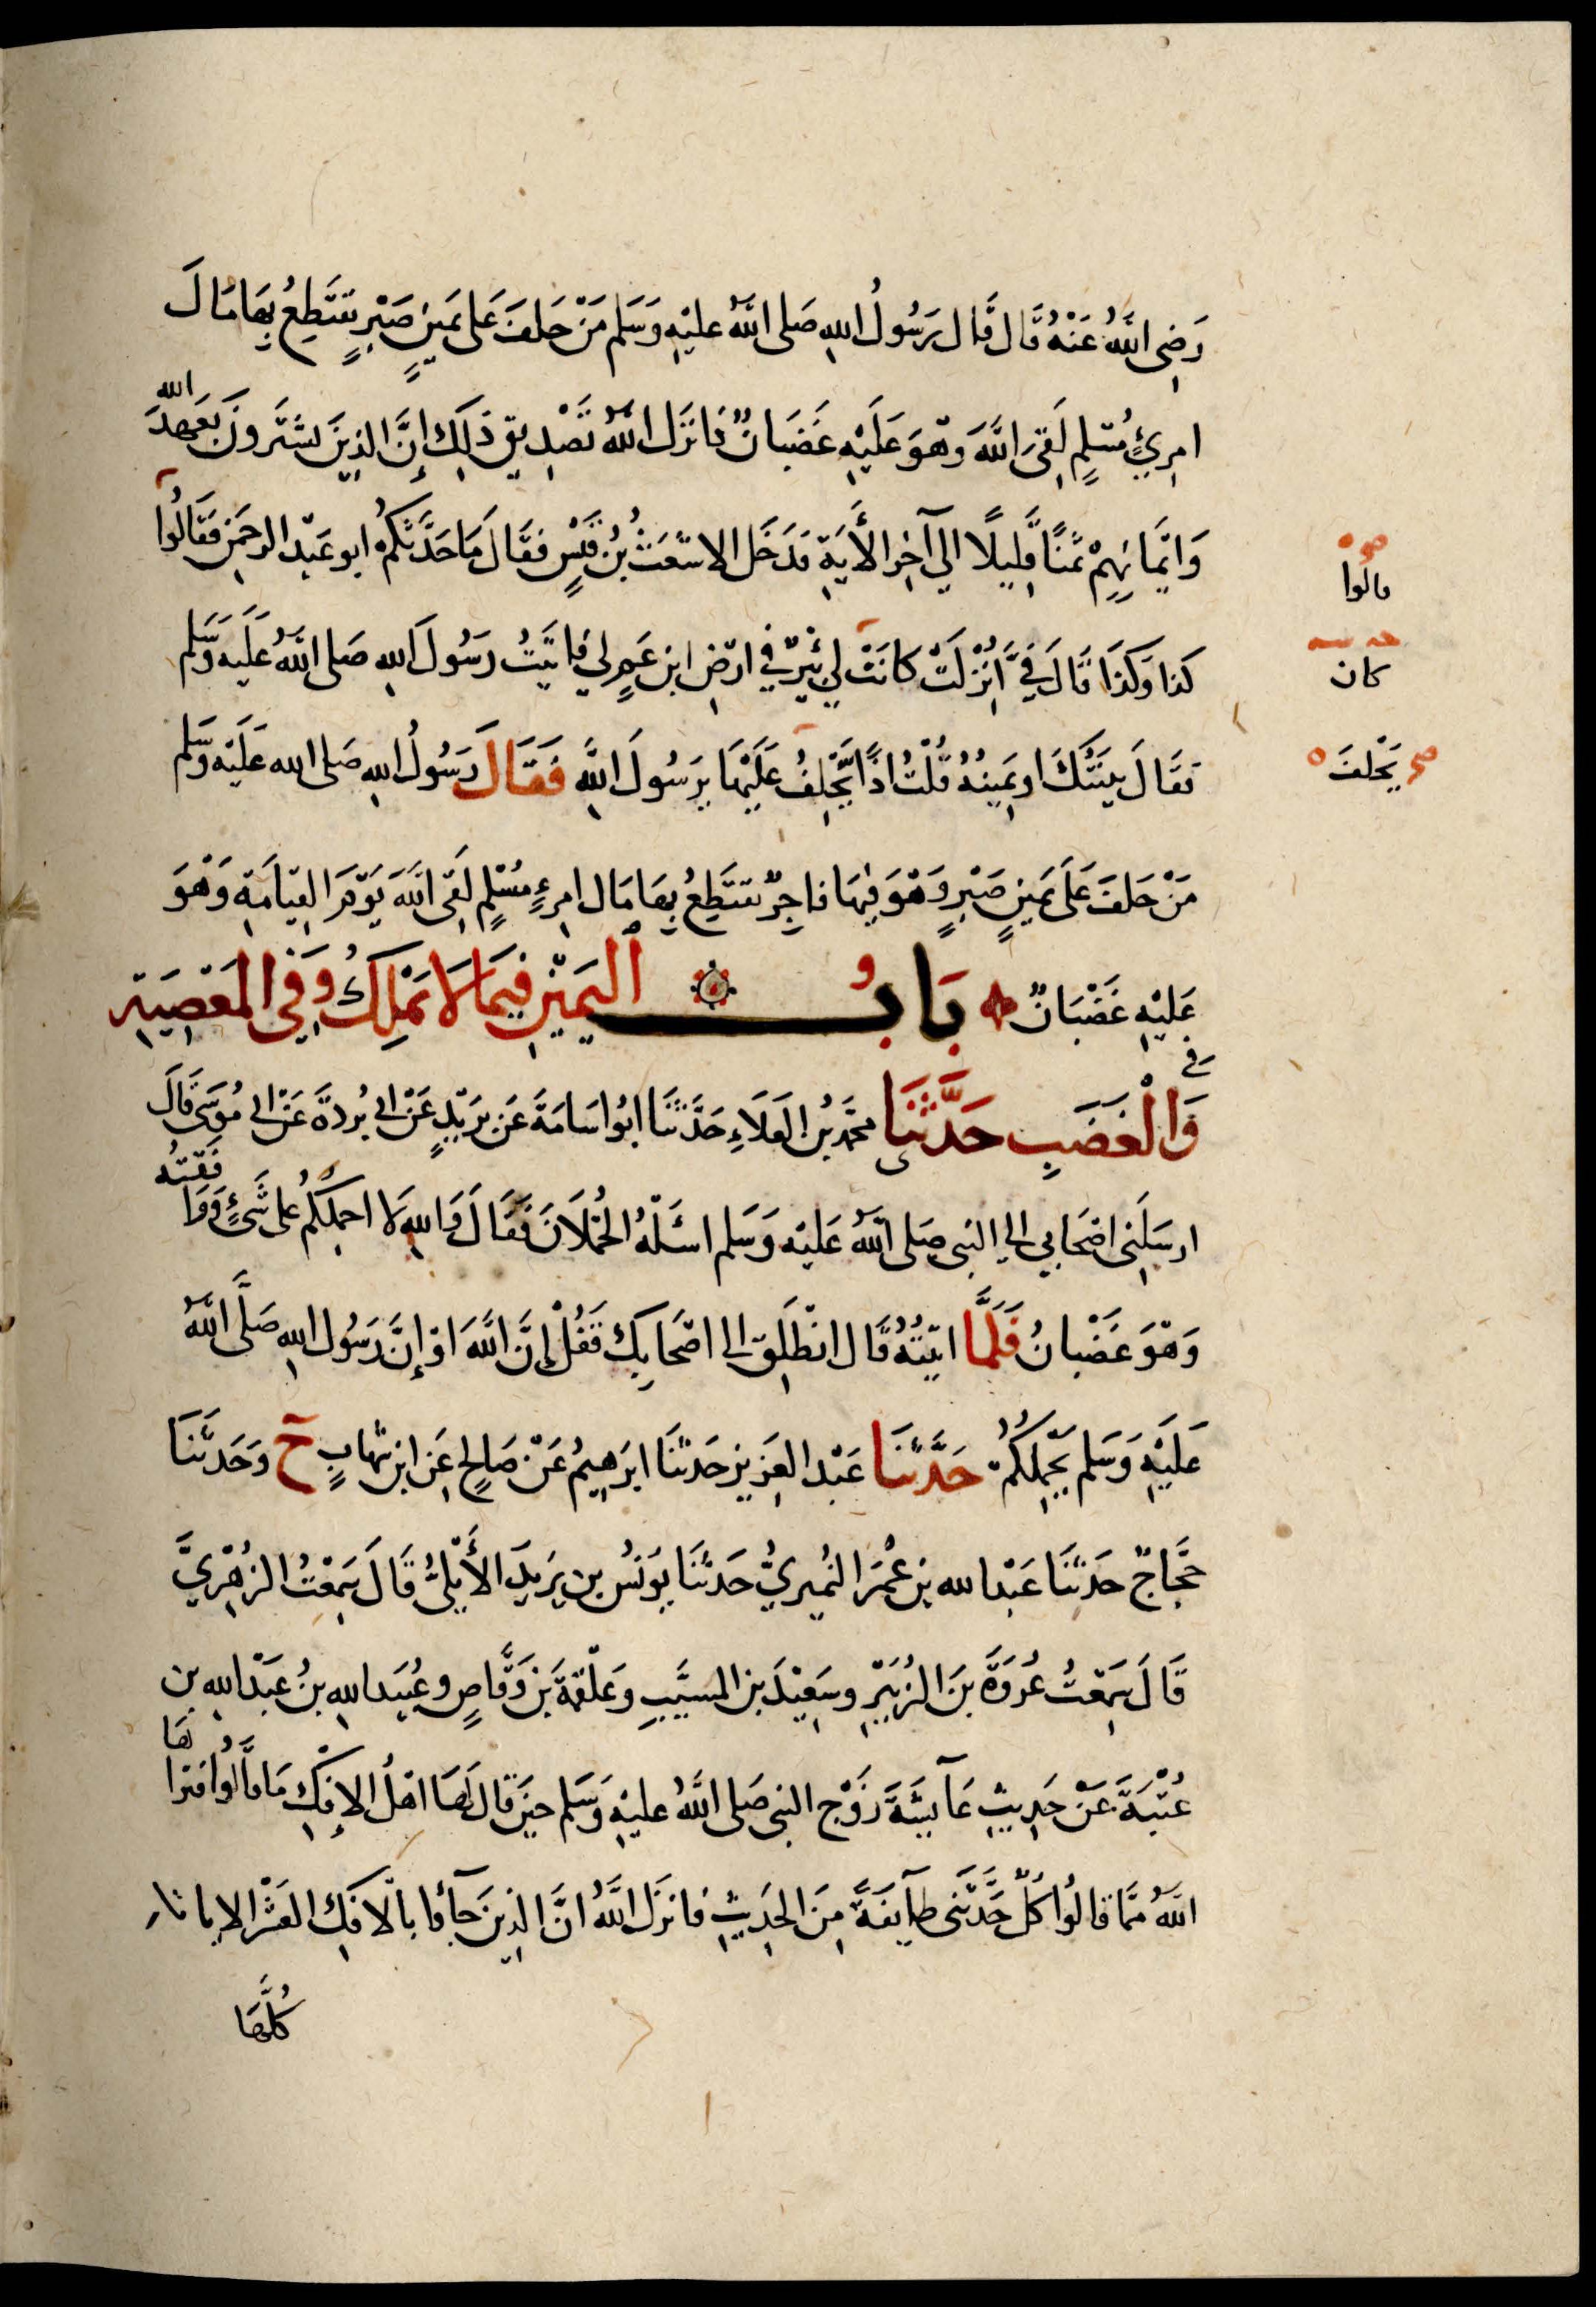 رَضِىَ اللهُ عَنْهُ قَالَ قَالَ رَسُولُ اللهِ صَلى اللهُ عليْهِ وَسَلم مَنْ حَلفَ عَلى يَمِينِ صَبْرٍ يَقتَطِعُ بِهَا مَالَ
امرِئٍ مُسْلِمٍ لَقِىَ اللهَ وَهْوَ عَلَيْهِ غَضْبَانٌ فَانزَلَ اللهُ تَصْدِيقَ ذَلِكَ إنَّ الذِينَ يَشتَرُونَ بعَهدِ الله
وَايْمَانِهِمْ ثَمَنًا قَلِيلًا الي آخِرِ الأَيَةِ فَدَخَلَ الاشْعَثُ بْنُ قَيْسٍ فقَالَ مَا حَدَّثَكُمْ ابو عَبْدِ الرحمَنِ فقَالُوا
قالُوا
كَذا وَكَذَا قَالَ فِيَّ أُنْزِلَتْ كانَتْ لِي بِئْرٌ في ارْضِ ابنِ عَمٍ لِي فاتَيْتُ رَسُولَ اللهِ صَلى اللهُ عَلَيْهِ وَسَلم
كان
فَقَالَ بَيِّنَتُكَ او يَمِينُهُ قُلْتُ اذًا يَحْلِفُ عَلَيْهَا يَرَسُولَ اللهِ فَقَالَ رَسُولُ اللهِ صَلى الله عَلَيْه وَسَلم
صح يَحْلفَ
مَنْ حَلفَ عَلَى يَمينِ صَبْرٍ وَهْوَ فِيهَا فاجِرٌ يَقتَطِعُ بِهَا مَالَ امرِءٍ مُسْلِمٍ لَقِىَ اللهَ يَوْمَ القِيَامَةِ وَهْوَ
عَلَيْهِ غَضْبَانٌ بَابُ اليَمِيْنِ فِيمَا لَا يَمْلِكُ وَفِي المَعْصِيَةِ
وَالْغَضَبِ في حَدَّثَنِى محمَّدُ بْنُ العَلَاءِ حَدَّثَنَا ابُوا سَامَةَ عَن بُرَيْدٍ عَنْ ابي بُردَةَ عَنْ ابي مُوسَى قَالَ
ارسَلَنِى اصْحَابي الي النبى صَلى اللهُ عَليْه وَسَلم اسْئَلُهُ الحُمْلَانَ فَقَالَ وَاللهِ لَا احمِلُكُمْ على شَىْءٍ وَوَافَقْتُه
وَهْوَ غَضْبانُ فَلَمَّا اتَيْتُهُ قَالَ انْطَلِقْ الى اصْحَابِكَ فَقُلْ إنَّ اللهَ اوْ إنَّ رَسُولَ اللهِ صَلَّى اللهُ
عَلَيْهِ وَسَلم يَحْمِلُكُمْ حَدَّثَنَا عَبْدُ العَزِيزِ حَدثنَا ابرَهِيمُ عَنْ صَالِحٍ عَنِ ابنِ شِهَابٍ ح وَحَدثَنَا
حَجَّاجٌ حَدَثَنَا عَبْدُ الله بن عُمَرَ النُمَيْرِيُّ حَدثَنَا يُونُسُ بن يَزِيدَ الأَيْلِىُّ قَالَ سَمِعْتُ الزُهْرِيَّ
قَالَ سَمِعْتُ عُرْوَةَ بنَ الزُبَيْرِ وسَعِيْدَ بنَ المسَيَّبِ وعَلْقَمَةَ بنَ وَقَّاصٍ وعُبَيدَ اللهِ بنَ عَبْدِ اللهِ بن
عُتْبَةَ عَنْ حَدِيثِ عَآئِشَةَ زَوْجِ النبى صَلى اللهُ عليْهِ وَسَلم حِينَ قَالَ لَهَا اهْلُ الإفْكِ مَا قَالُوا فبَرَّاهَا
اللهُ مِمَّا قالُوا كُلٌّ حَدَّثَنِى طَآئِفَةً مِنَ الحَدِيثِ فانزَلَ اللهُ انَّ الذِينَ جَآءُوا بالافكِ العَشْرَ الايات
كُلَّهَا